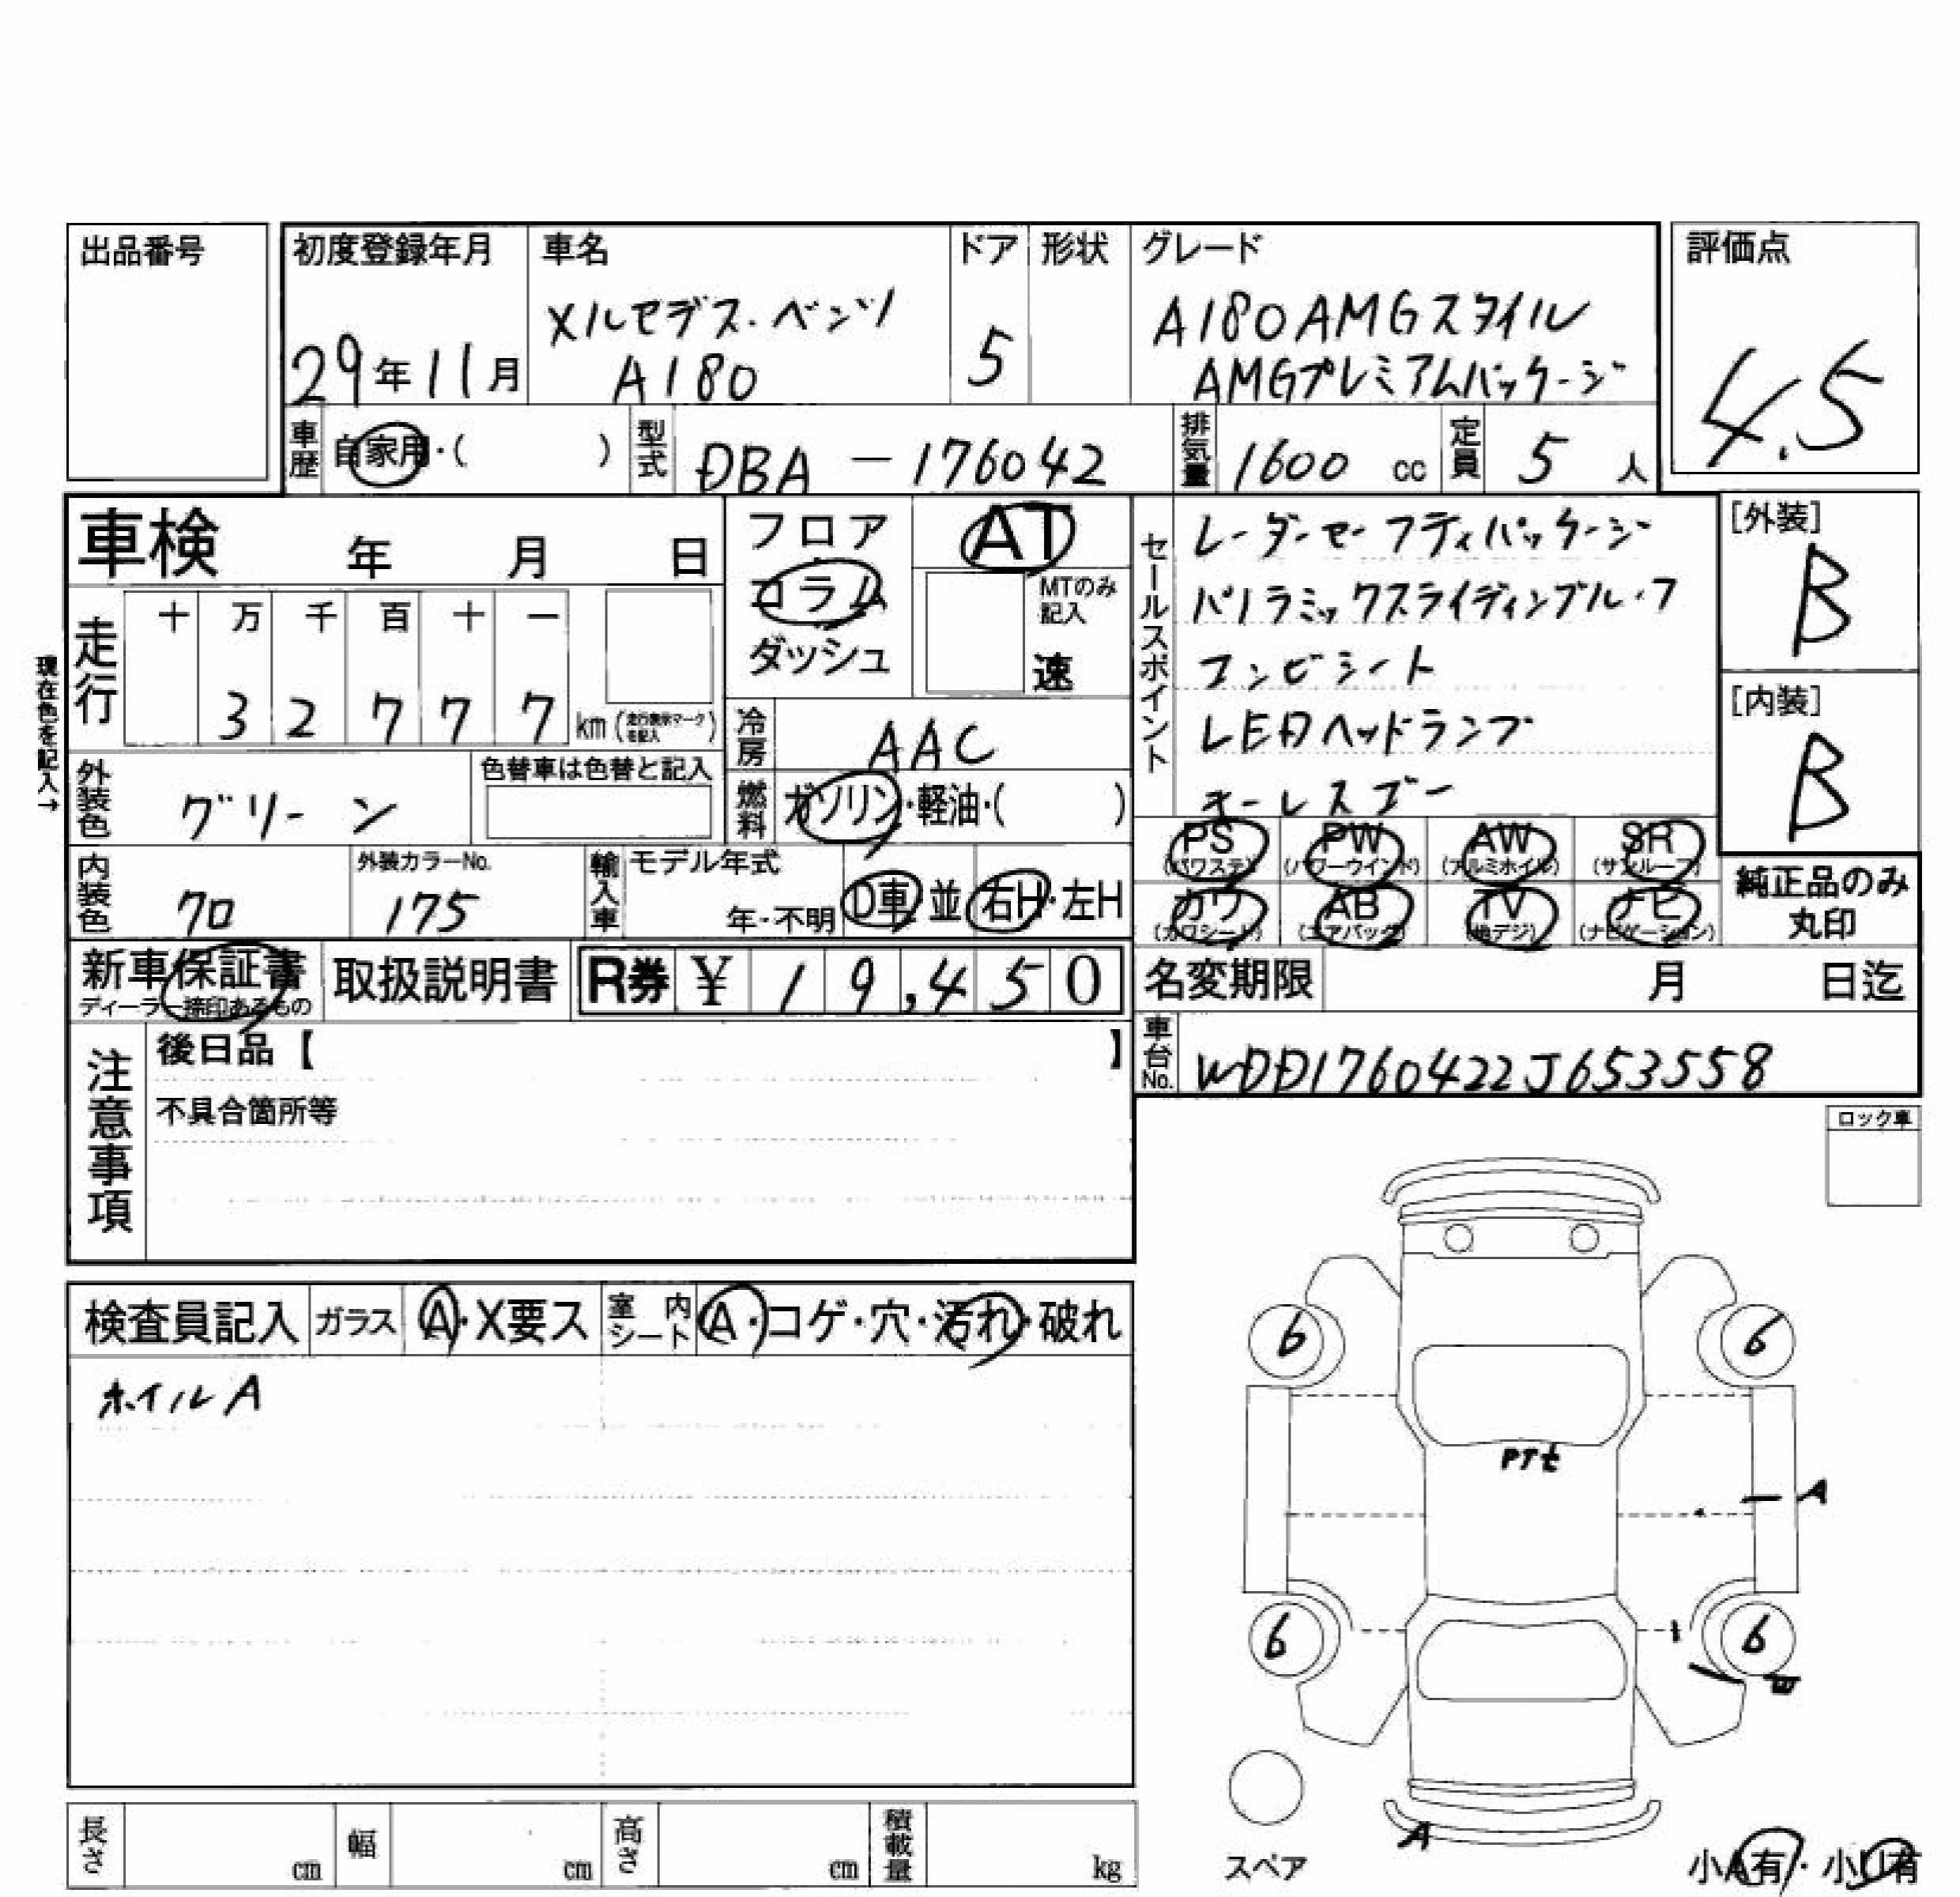 出品番号
初度登録年月
29年11月
車名
メルセデス・ベンツ
A180
ドア
5
形状
グレード
A180AMGスタイル
AMGプレミアムパッケージ
評価点
4.5
車歴 自家用・( )
型式 DBA-176042
排気量 1600 cc
定員 5 人
車検 年 月 日
フロア
コラム
ダッシュ
AT
MTのみ
記入
速
セールスポイント
レーダーセーフティパッケージ
パノラミックスライディングルーフ
コンビシート
LEDヘッドランプ
キーレスゴー
[外装]
B
[内装]
B
現在色を記入→
走行
十 万 千 百 十 一
3 2 7 7 7 km (走行表示マークを記入)
冷房 AAC
燃料 ガソリン・軽油・( )
外装色 グリーン
色替車は色替と記入
内装色 クロ
外装カラーNo.
175
輸入車
モデル年式
年・不明
D車 並
右H・左H
PS
(パワステ)
PW
(パワーウインド)
AW
(アルミホイル)
SR
(サンルーフ)
カワ
(カワシート)
AB
(エアバック)
TV
(地デジ)
ナビ
(ナビゲーション)
純正品のみ
丸印
新車保証書
ディーラー捺印あるもの
取扱説明書
R券 ¥ 19,450
名変期限 月 日迄
車台No. WDD1760422J653558
注意事項
後日品【 】
不具合箇所等
ロック車
検査員記入
ガラス A・X要ス
室内シート A・コゲ・穴・汚れ・破れ
ホイルA
6
6
PTセ
A
6
6
W
A
スペア
小A有・小U有
長さ cm
幅 cm
高さ cm
積載量 kg